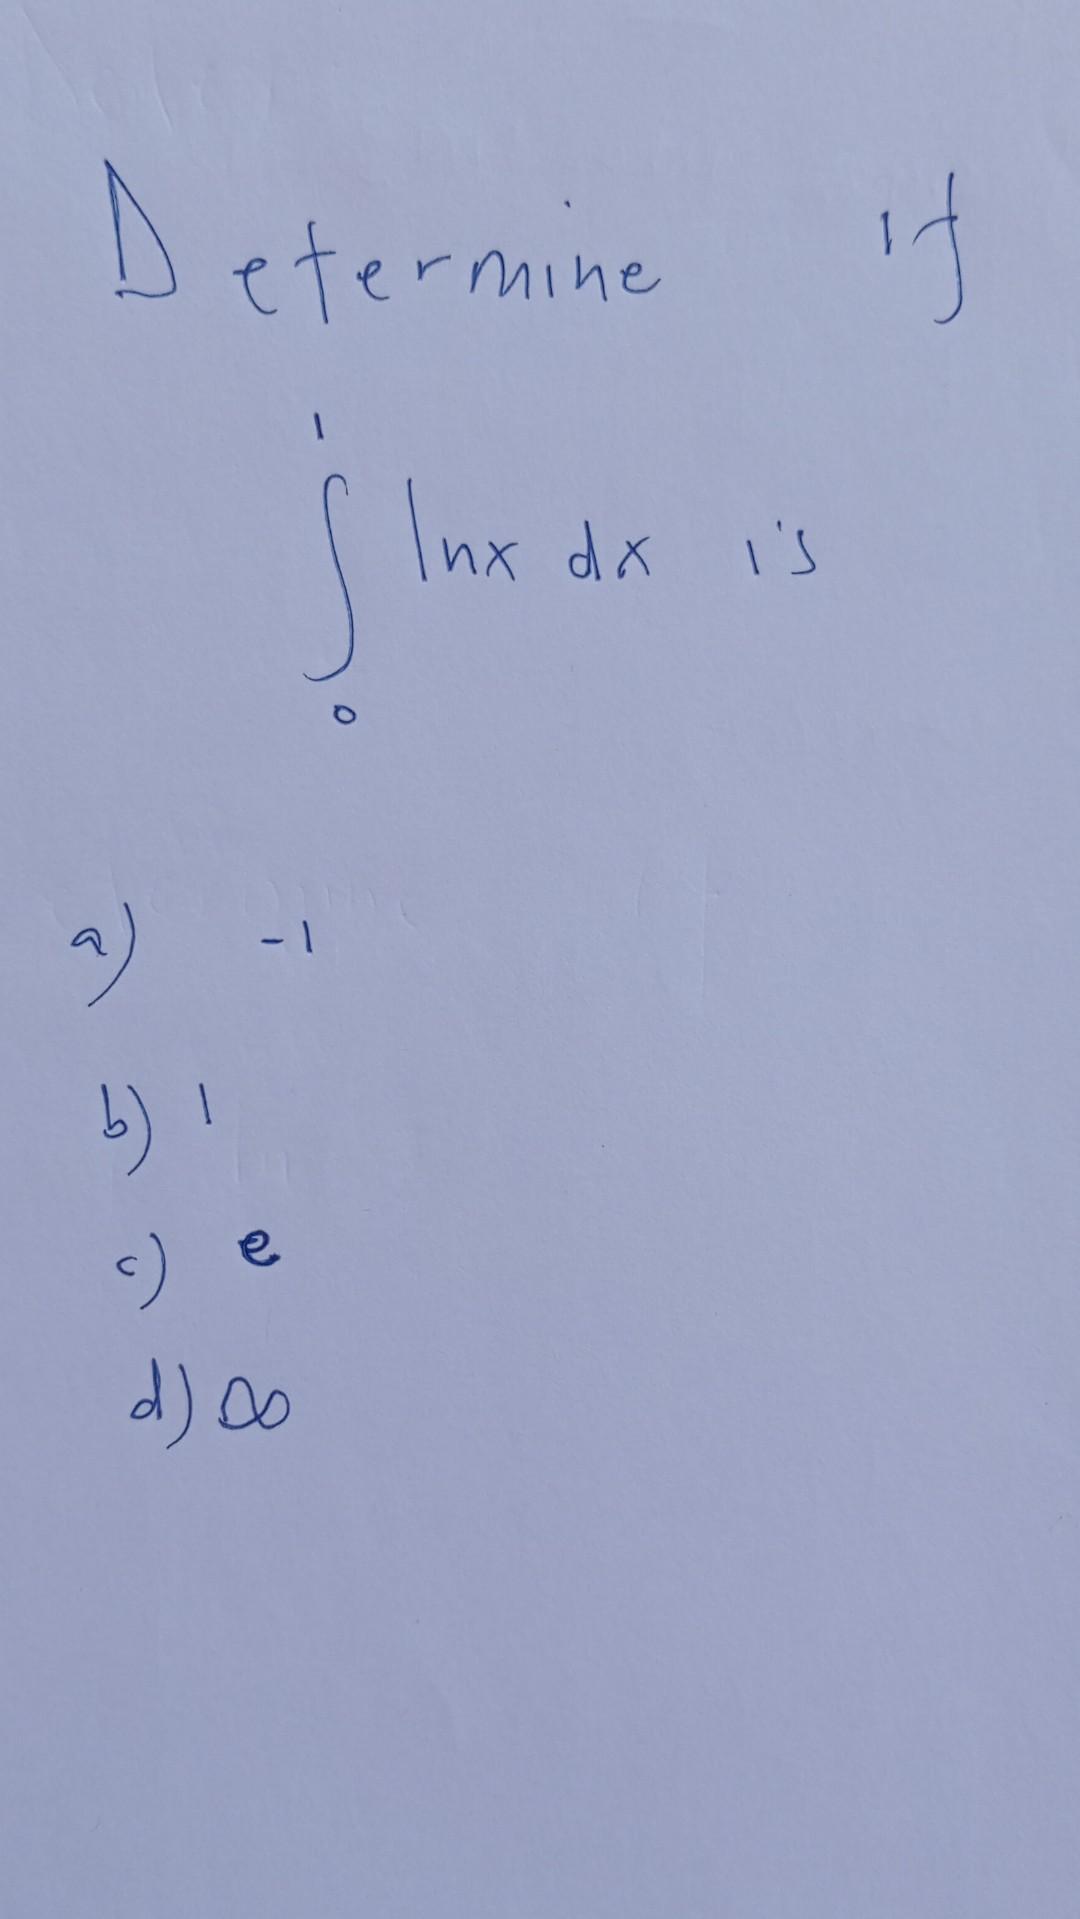 Determine if
∫₀¹ lnx dx is
a) -1
b) 1
c) e
d) ∞